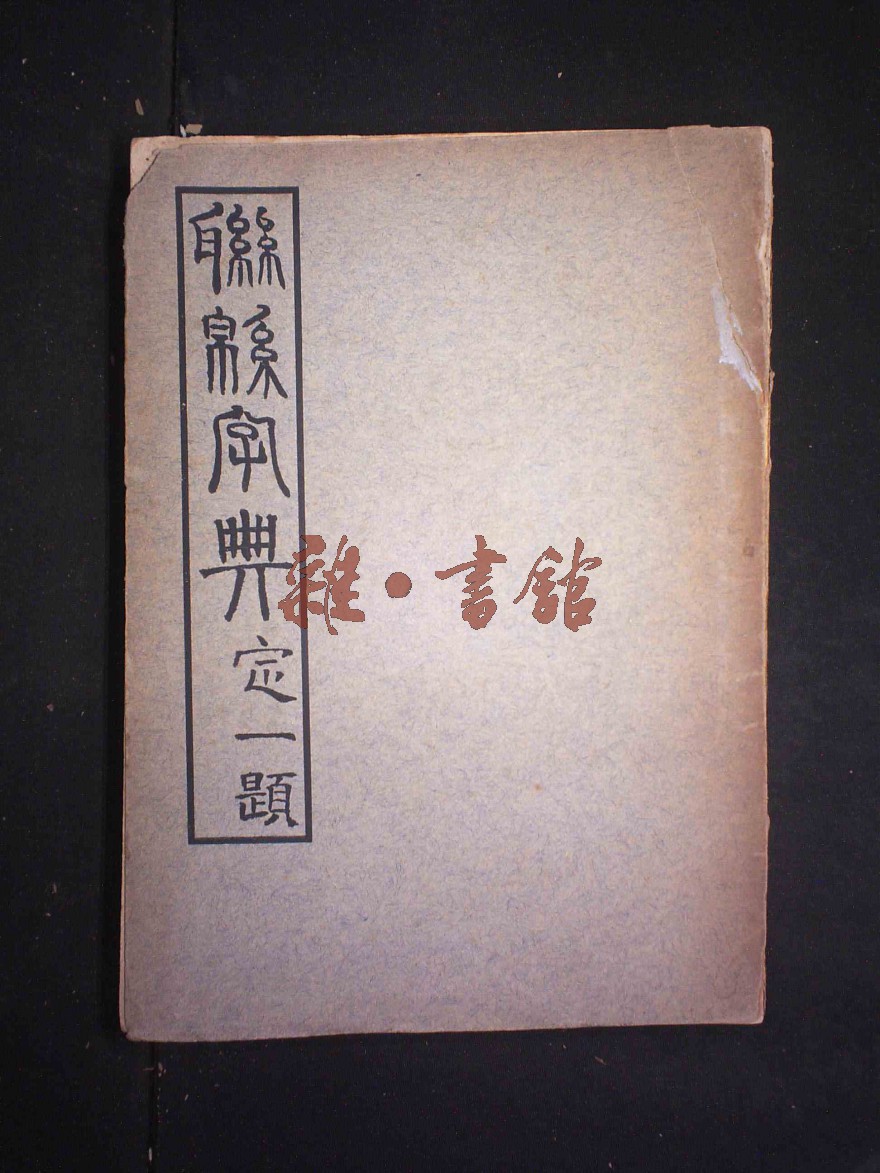 聯緜字典定一題
雜·書館